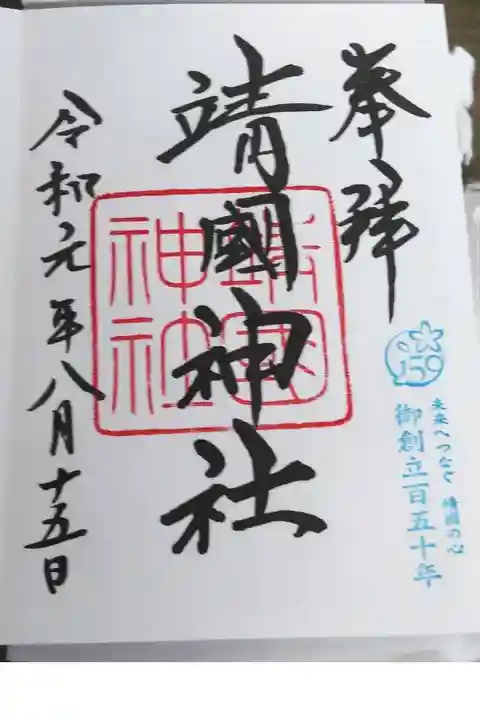 奉拝
150
未来へつなぐ 靖國の心
御創立百五十年
靖國神社
靖國
神社
令和元年八月十五日